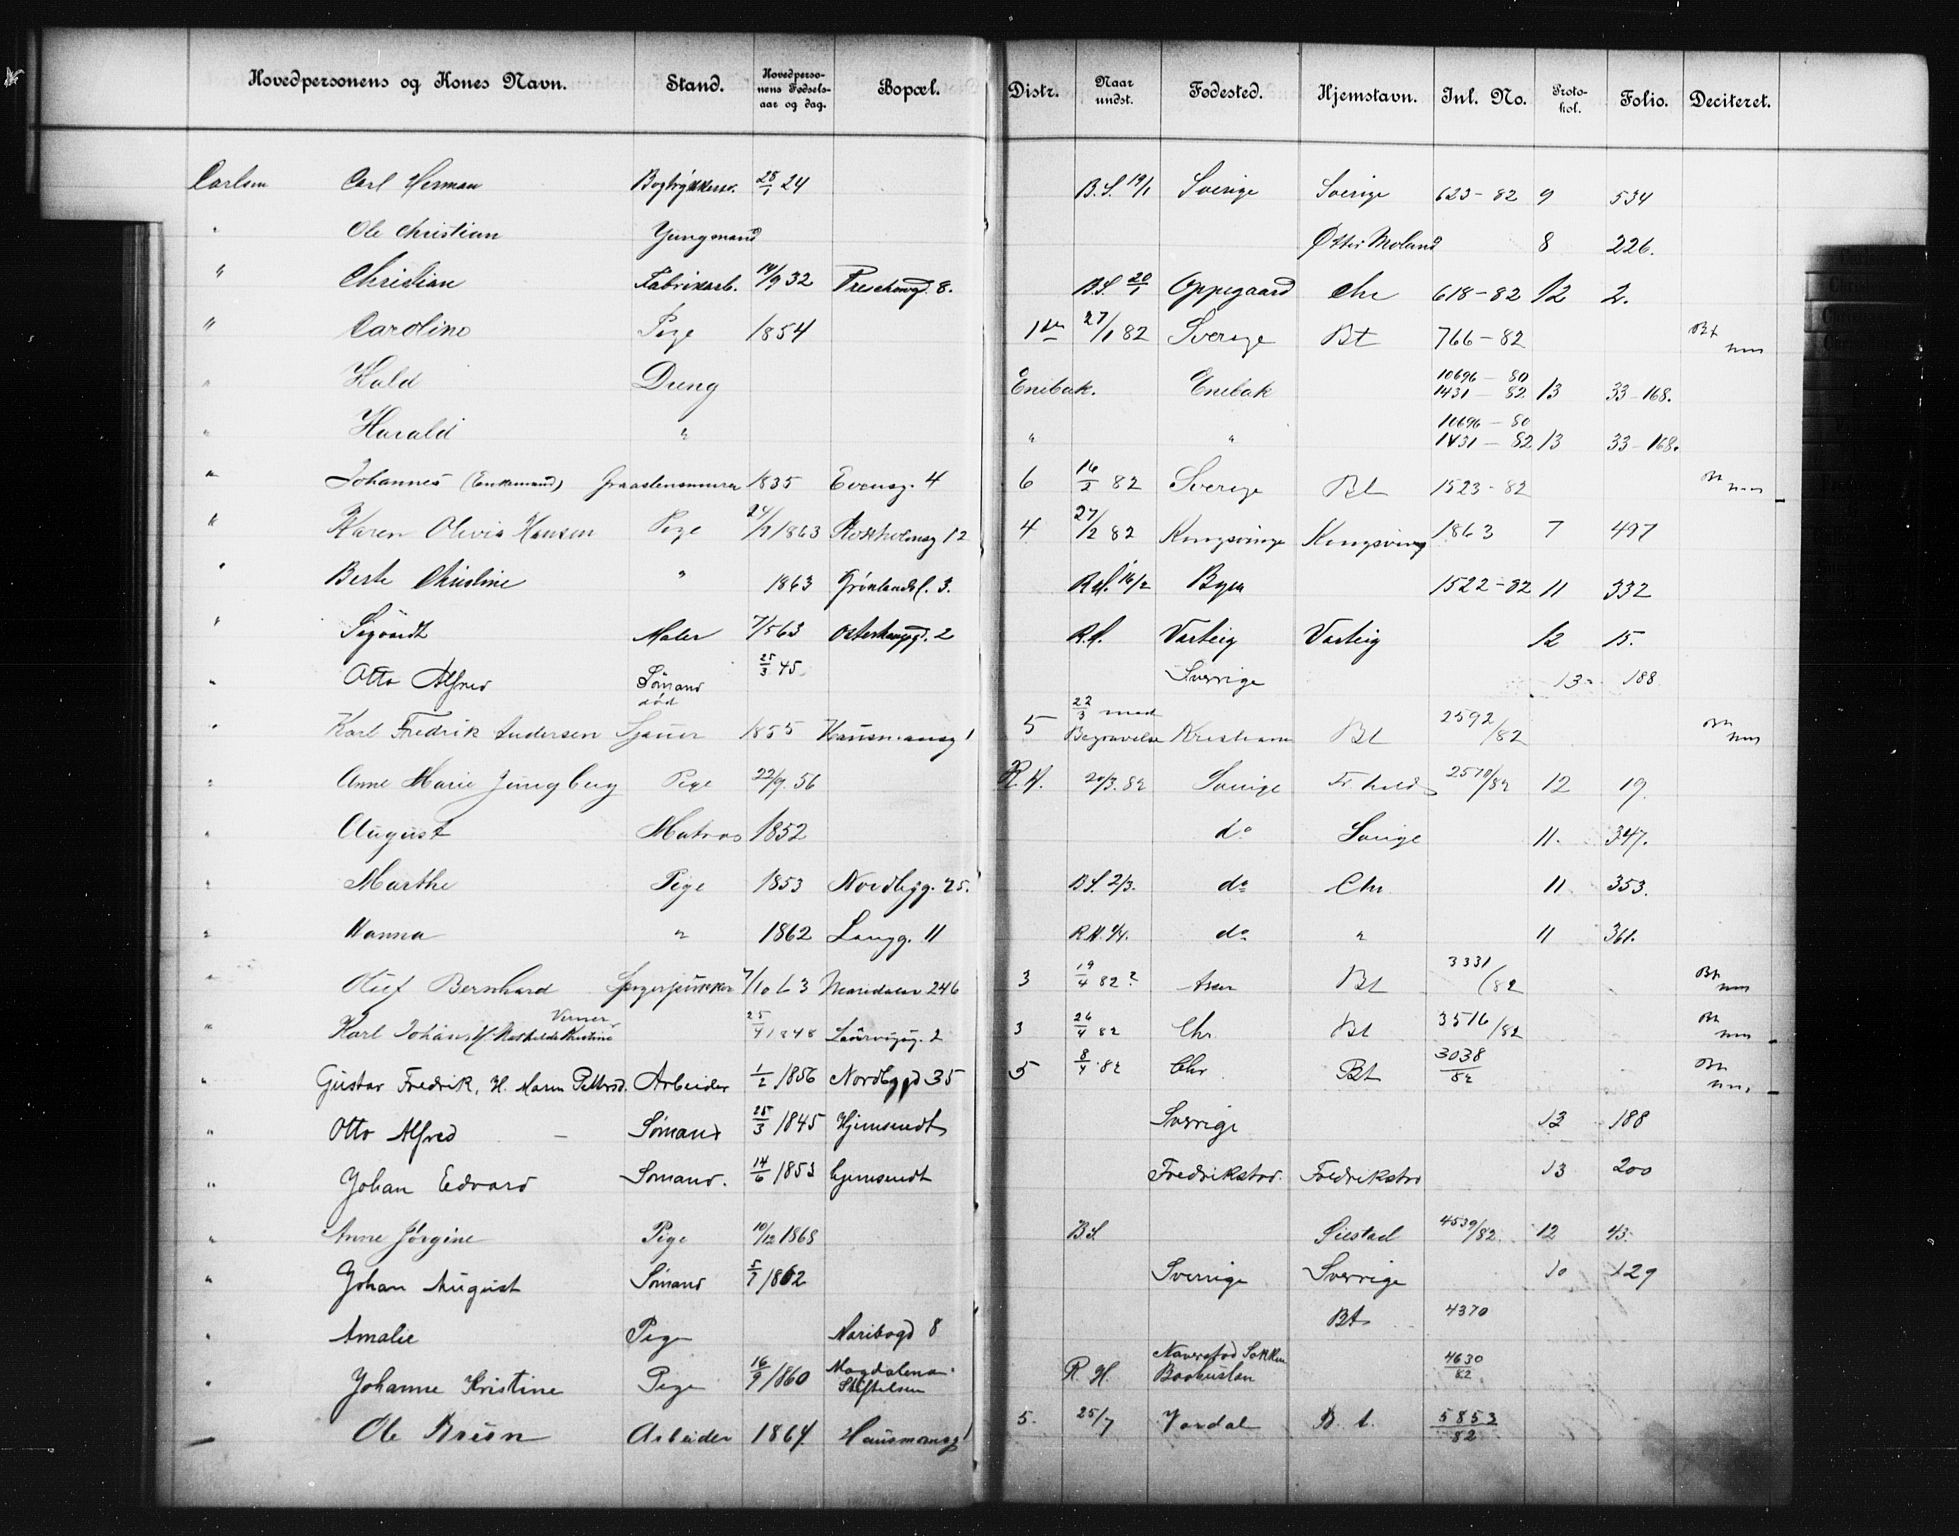 Hovedpersonens og Kones Navn. Stand. Hovedperso-nens Fødsels-aar og dag. Bopæl. Distr. Naar undst. Fødested. Hjemstavn. Inl. No. Proto-kol. Folio. Deciteret.
Carlsen Carl Herman Bogtrykkersv. 28/1 24 B.S. 19/1 Sverige Sverige 623-82 9 534
" Ole Christian Yungmand Østre Moland 8 226.
" Christian Fabrikarb. 14/9 32 8. B.S. 20/1 Oppegaard Chr 618-82 12 2.
" Caroline Pige 1854 1ste 27/1 82 Sverige Bt 766-82 Bt
" Hald Dreng Enebak. Enebak 10696-80 1431-82 13 33-168.
" Harald " " " 10696-80 1431-82 13 33-168.
" Johannes (Enkemand) Graastensmurer 1835 4 6 16/2 82 Sverige Bt 1523-82
" Karen Olivia Hansen Pige 1863 12 4 27/2 82 Kongsvinger Kongsving 1863 7 497
" Berte Christine " 1863 Grønlandsl. 3. R.H. 16/2 Byen 1522-82 11 332
" Sigvardt Maler 7/5 63 2 R.H. Varteig Varteig 12 15.
" Otto Alfred Sømand død 25/3 45 Sverrige 13 188
" Karl Fredrik Andersen Sjauer 1855 Hausmansg 1 5 22/3 med Begravelse Kristiania Bt 2592/82
" Anne Marie Jungberg Pige 22/9. 56 R.H. 20/3. 82 Sverige Fr.hald 2570/82 12 19.
" August Matros 1852 do Sverige 11. 347.
" Marthe Pige 1853 Nordbyg. 25. B.S. 2/3. do Chr 11 353.
" Hanna " 1862 Langg. 11 R.H. do " 11 361.
" Oluf Bernhard 7/10 63 Maridalen 246 3 19/4 82? Asker Bt 3331/82 Bt
" Karl Johan Verner H. Mathilde Kristine 25/4 1848 2 3 26/4 82 Chr Bt 3516/82 Bt
" Gustav Fredrik, H. Maren Pettersd. Arbeider 1/2 1856 Nordbygd 35 5 8/4 82 Chr Bt 3038/82
" Otto Alfred Sømand 25/3 1845 Hjemsendt Sverrige 13 188
" Johan Edvard Sømand. 14/6 1853 hjemsendt Fredrikstad. Fredrikstad 13 200
" Anne Jørgine Pige 10/12 1868 B.S. 4539/82. 12 43.
" Johan August Sømand 5/7 1862 Sverrige Sverrige 10 129
" Amalie Pige Maribogd 8 Bt 4370
" Johanne Kristine Pige 16/9 1860 Magdalena Stiftelsen R H. Naverstad Sokken Baahuslän 4630/82
Ole Brun Arbeider 1864. Hausmansg 1 5. 25/7 Vardal B. t. 5853/82